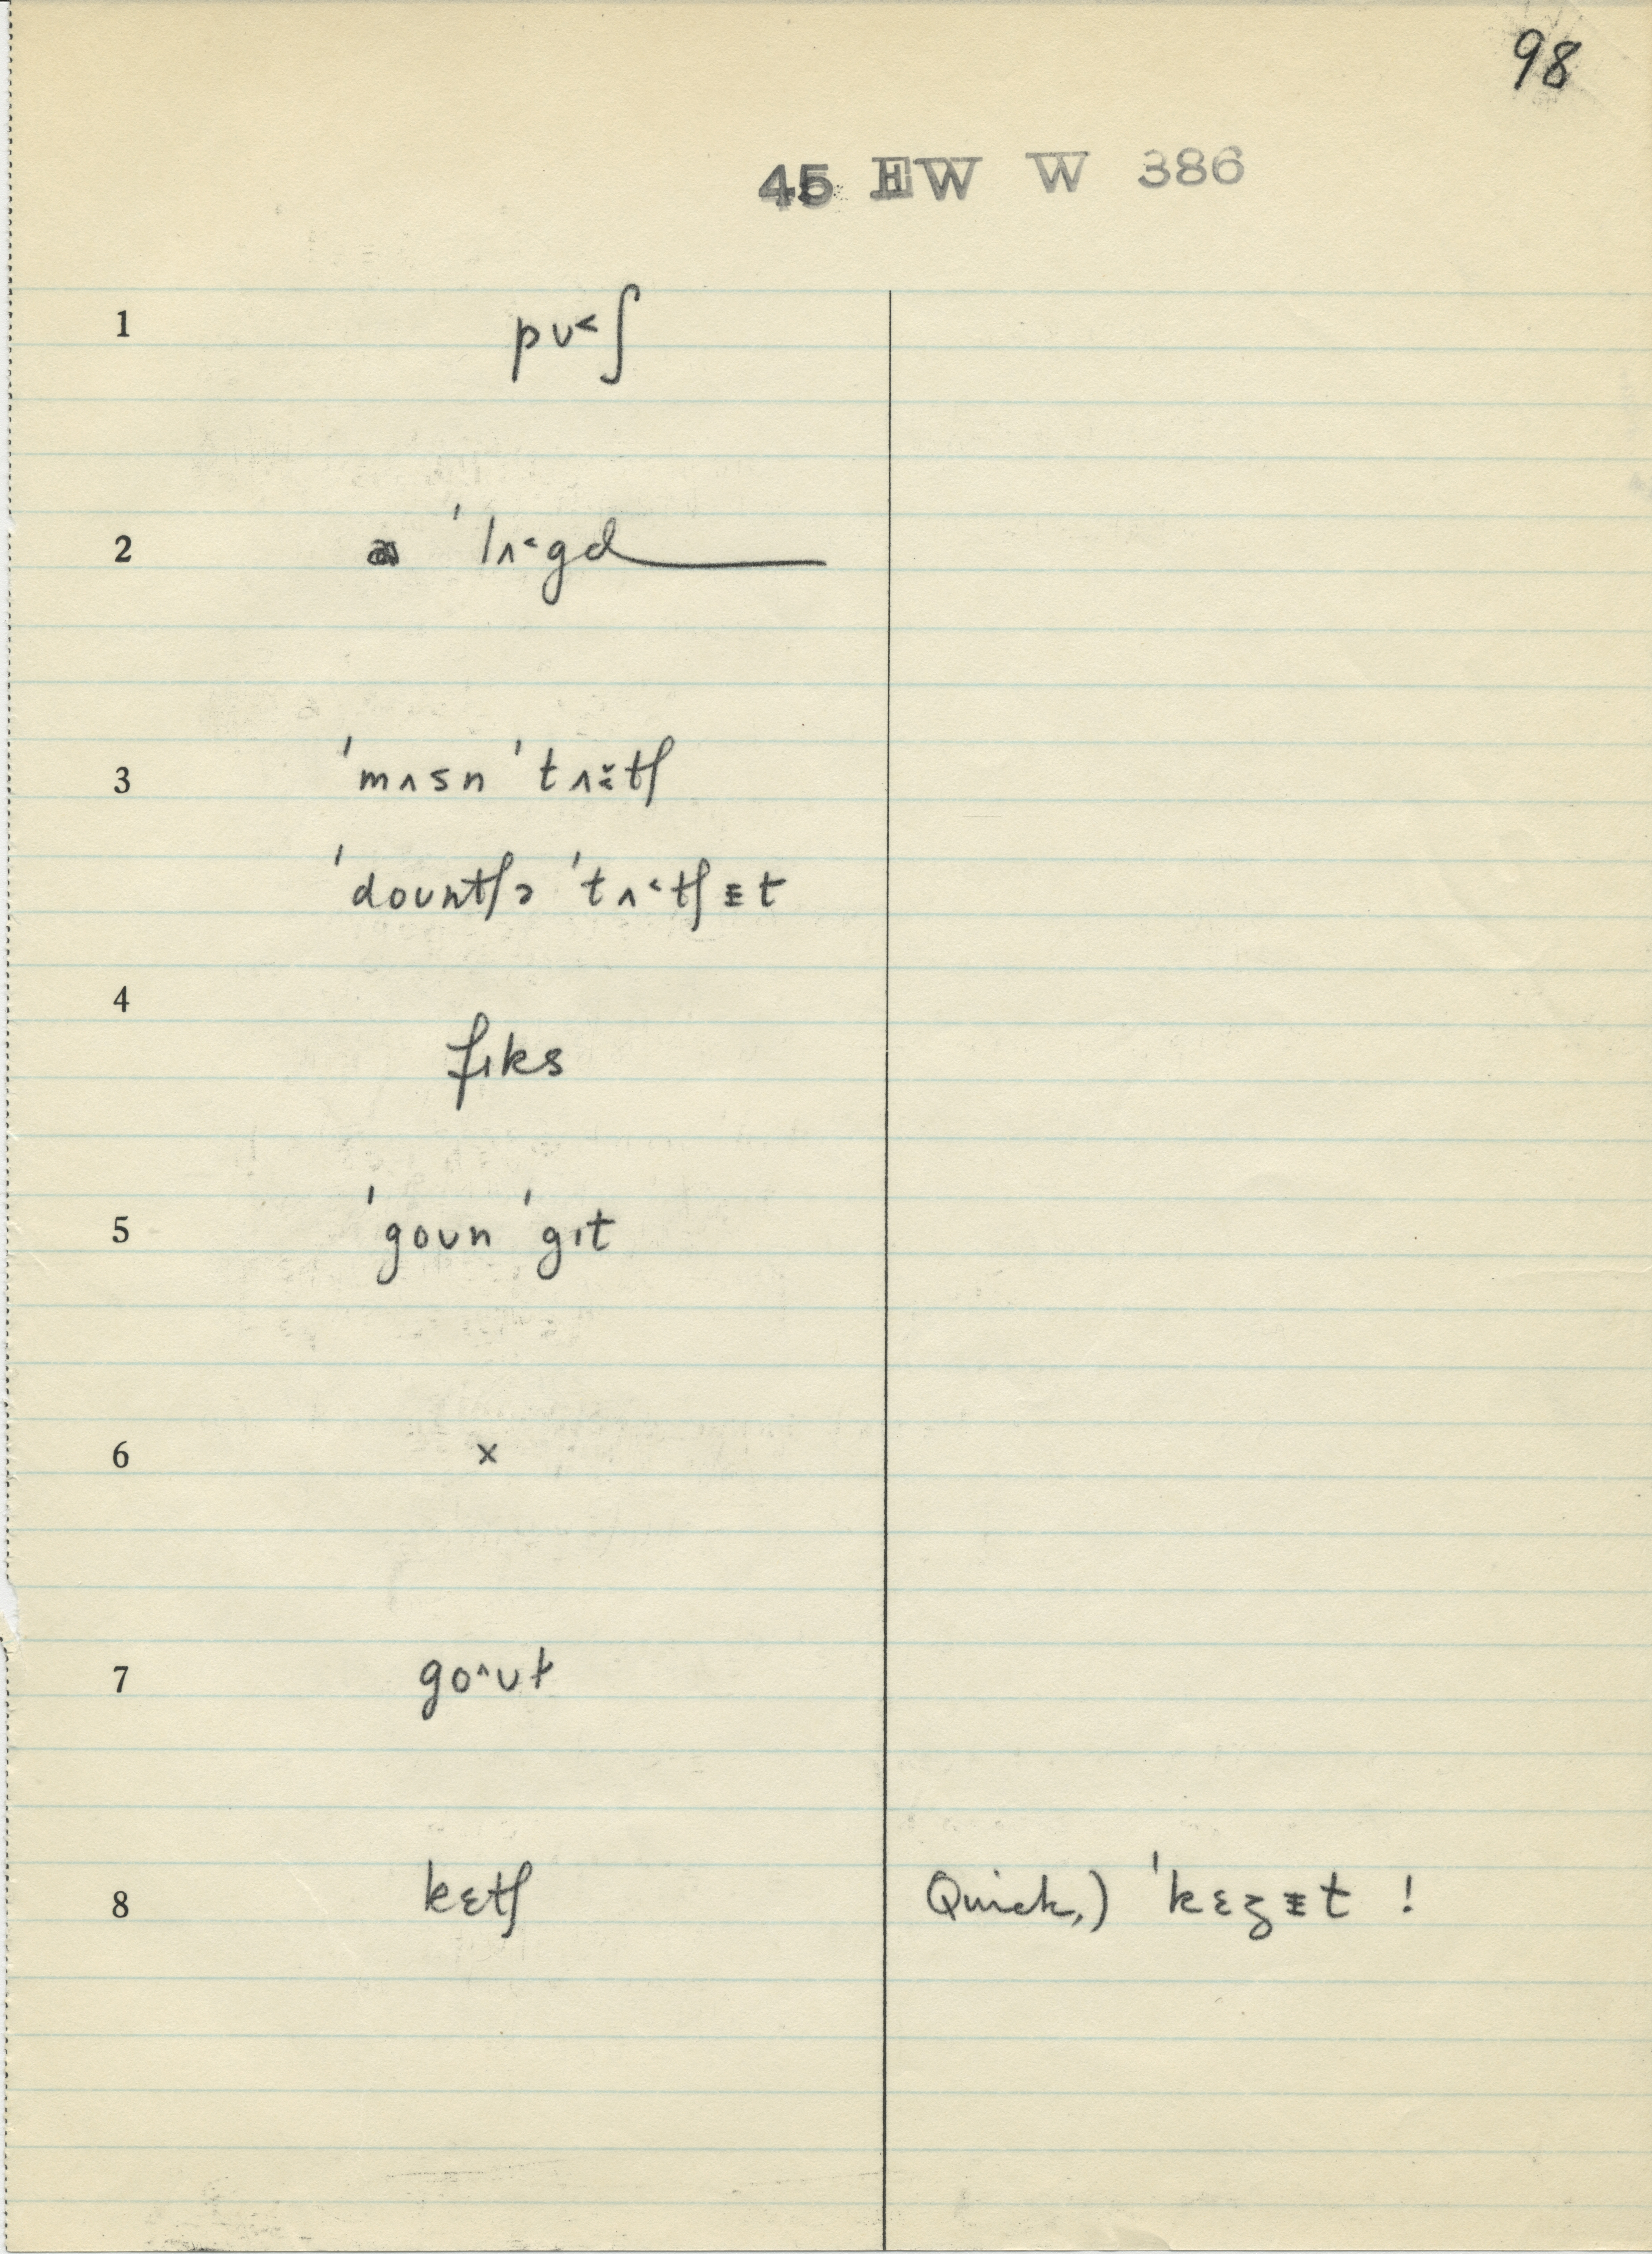 98
45 HW W 386
1 pʊ˂ʃ
2 ə ˈlʌ˂gd
3 ˈmʌsn ˈtʌ˂̆tʃ
ˈdoʊntʃə ˈtʌ˂tʃᵻt
4 fɪks
5 ˈgoʊn ˈgɪt
6 x
7 go˄ʊt
8 kɛtʃ Quick,) ˈkɛʒᵻt !